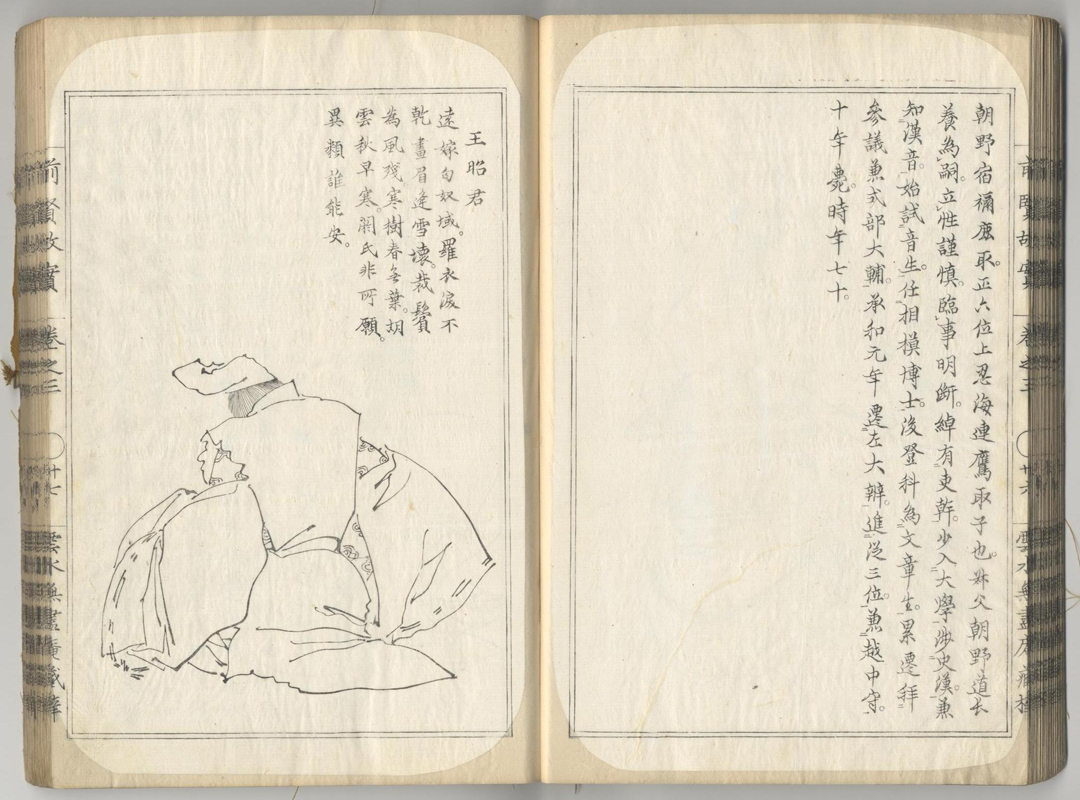 前賢故實 卷之三 廿六 雲水無盡庵藏梓
朝野宿禰鹿取。正六位上忍海連鷹取子也。叔父朝野道長
養為嗣。立性謹慎。臨事明断。綽有吏幹。少入大學。涉史漢。兼
知漢音。始試音生。任相模博士。後登科為文章生。累遷拜
參議兼式部大輔。承和元年遷左大辨。進從三位。兼越中守。
十年薨。時年七十。
王昭君
遠嫁匈奴域。羅衣淚不
乾。畫眉逢雪壞。裁鬢
為風殘。寒樹春無葉。胡
雲秋早寒。閼氏非所願。
異類誰能安。
前賢故實 卷之三 廿七 雲水無盡庵藏梓